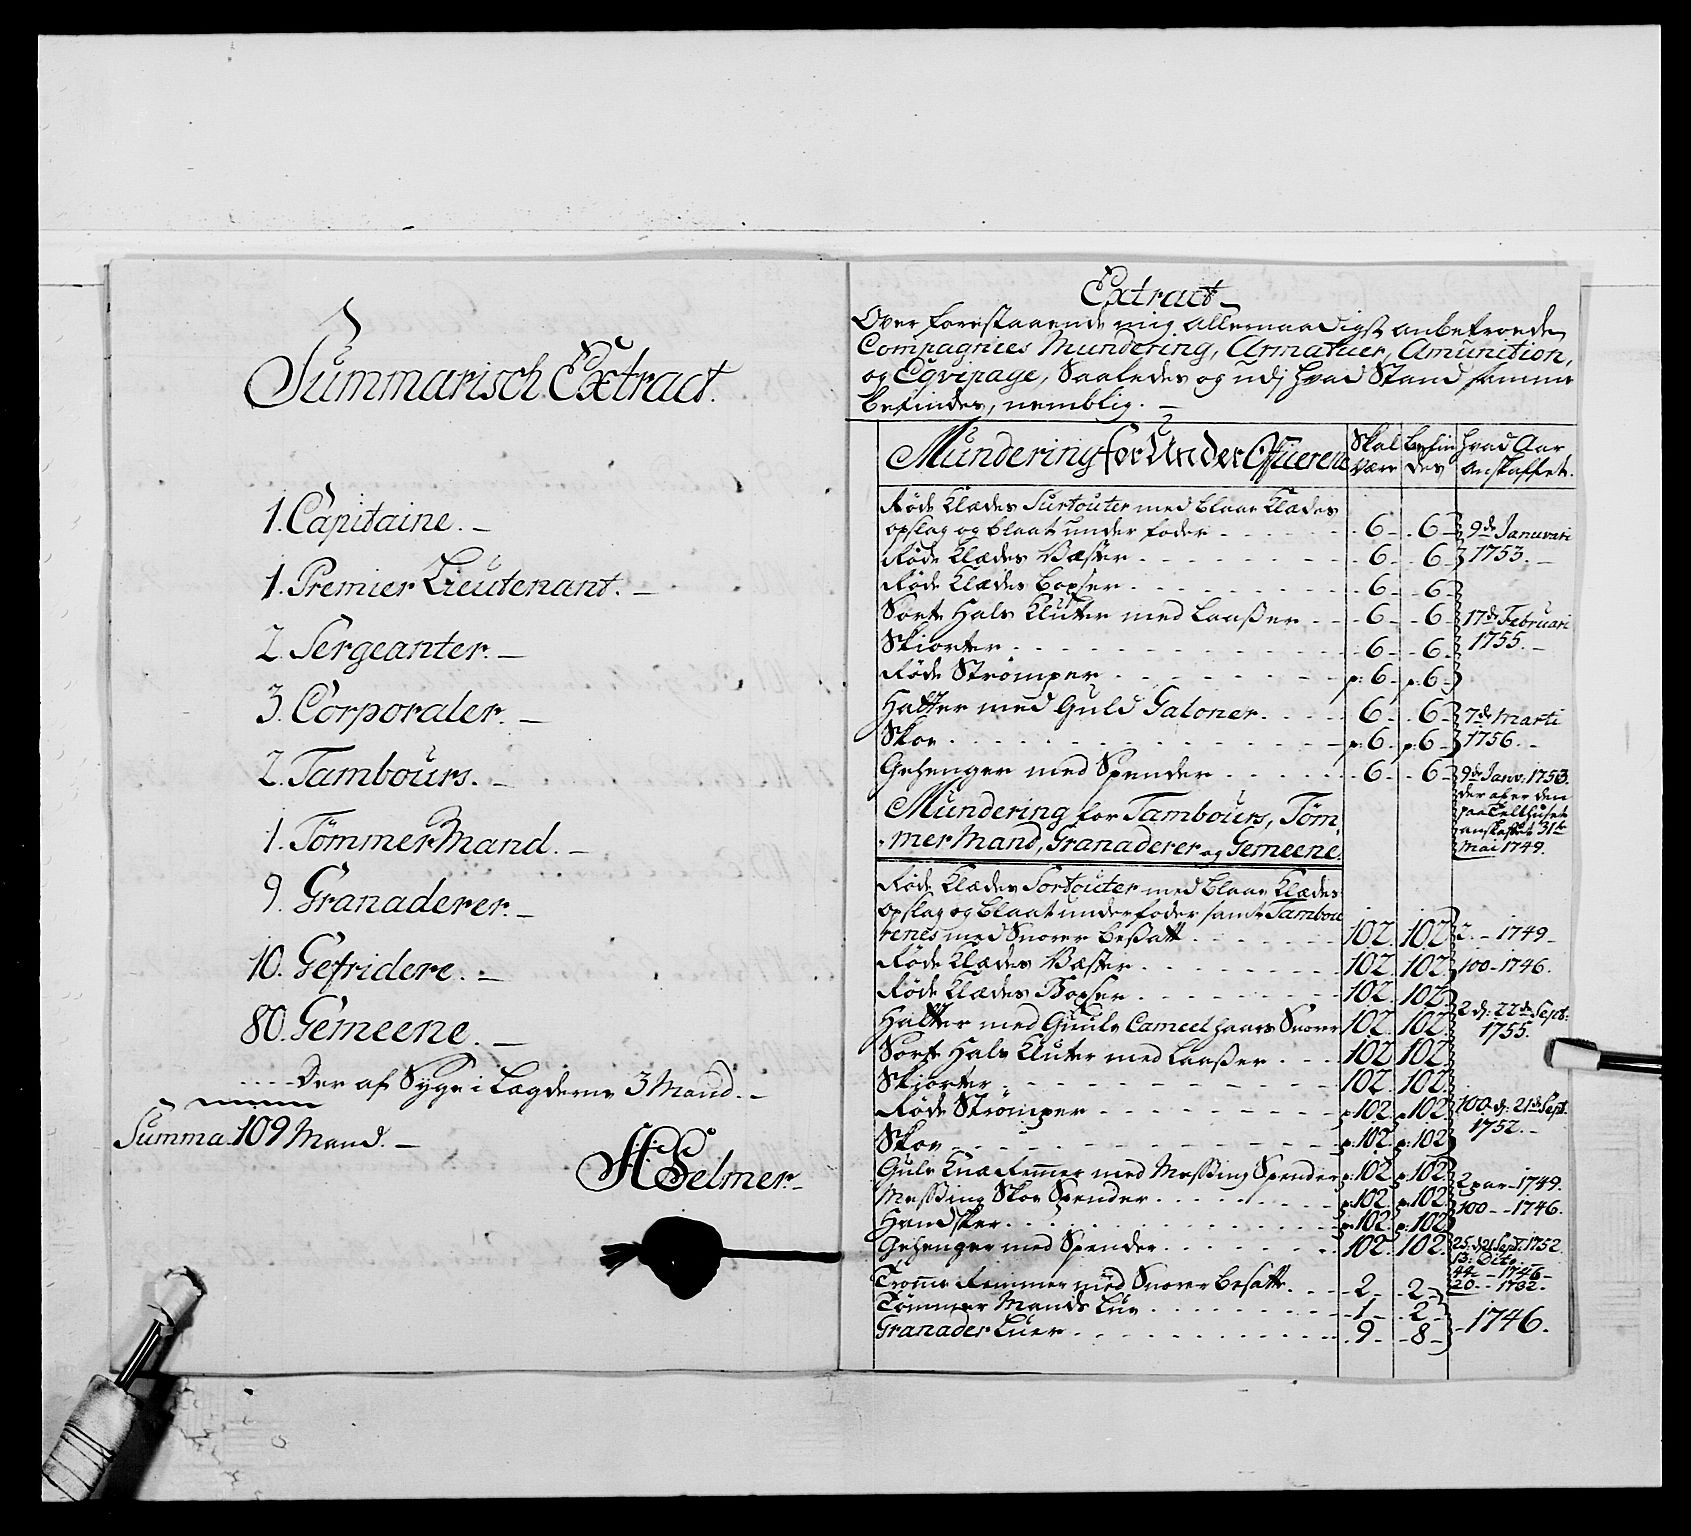 Summarisch Extract.
1. Capitaine. -
1. Premier Lieutenant. -
2. Sergeanter. -
3. Corporaler. -
2. Tambours. -
1. TömmerMand. -
9. Granaderer. -
10. Gefridere. -
80. Gemeene. -
Der af Syge i Lægderne 3 Mand. -
Summa 109 Mand. -
H Selmer. -
Extract -
Over forestaaende mig allernaadigst anbetroede
Compagnies Mundering, Armatuer, Amunition,
og Eqvipage, Saaledes og udj hvad Stand samme
befindes, nemblig. -
Mundering for Under Officerene | Skal være | befindes | hvad Aar anskaffet.
Røde Klædes Surtouter med blaae Klædes
opslag og blaat under foder - 6 - 6 - 9de Januari
Røde Klædes Væster - 6 - 6 - 1753. -
Røde Klædes boxser - 6 - 6 -
Sorte Hals Kluter med Laaßer - 6 - 6 - 17de Februari
Skiorter - 6 - 6 - 1755. -
Røde Strømper - p: 6 - p: 6 -
Hatter med Guld Galoner - 6 - 6 - 7de Marti
Skoe - p: 6 - p: 6 - 1756. -
Gehenger med Spender - 6 - 6 - 9de Janv: 1753.
der af er den
paa Telthuset
anskaffet 31te
Mai 1749.
Mundering for Tambours, Töm-
merMand, Granaderer og Gemeene.
Røde Klædes Sortouter med blaae Klædes
opslag og blaat under foder samt Tambou
renes med Snorer besatt - 102. 102. 2. - 1749 -
Røde Klædes Væster - 102. 102. 100 - 1746.
Røde Klædes Boxser - 102. 102.
2 d: 22de Sept:
Hatter med Guule Cameel haars Snorer 102. 102. 1755.
Sorte Hals Kluter med Laaßer - 102. 102.
Skiorter - 102. 102.
Røde Strømper - p: 102. p: 102. 100. d: 21de Sept:
Skoe - p: 102. p: 102. 1752. -
Gule Knæ Remmer med Messing Spender p: 102. p: 102. 2 par - 1749.
Messing Skoe Spender - p: 102. p: 102. 100 - - 1746.
Handsker - p: 102. p: 102.
Gehenger med Spender - 102. 102. 25. d 21 Sept: 1752.
13: Dito
44 - - 1746 -
20 - - 1732.
Tromme Remmer med Snorer besatte - 2 - 2 -
Tømmer Mands Lue - 1 - 2 -
Granader Luer - 9 - 8 - 1746.